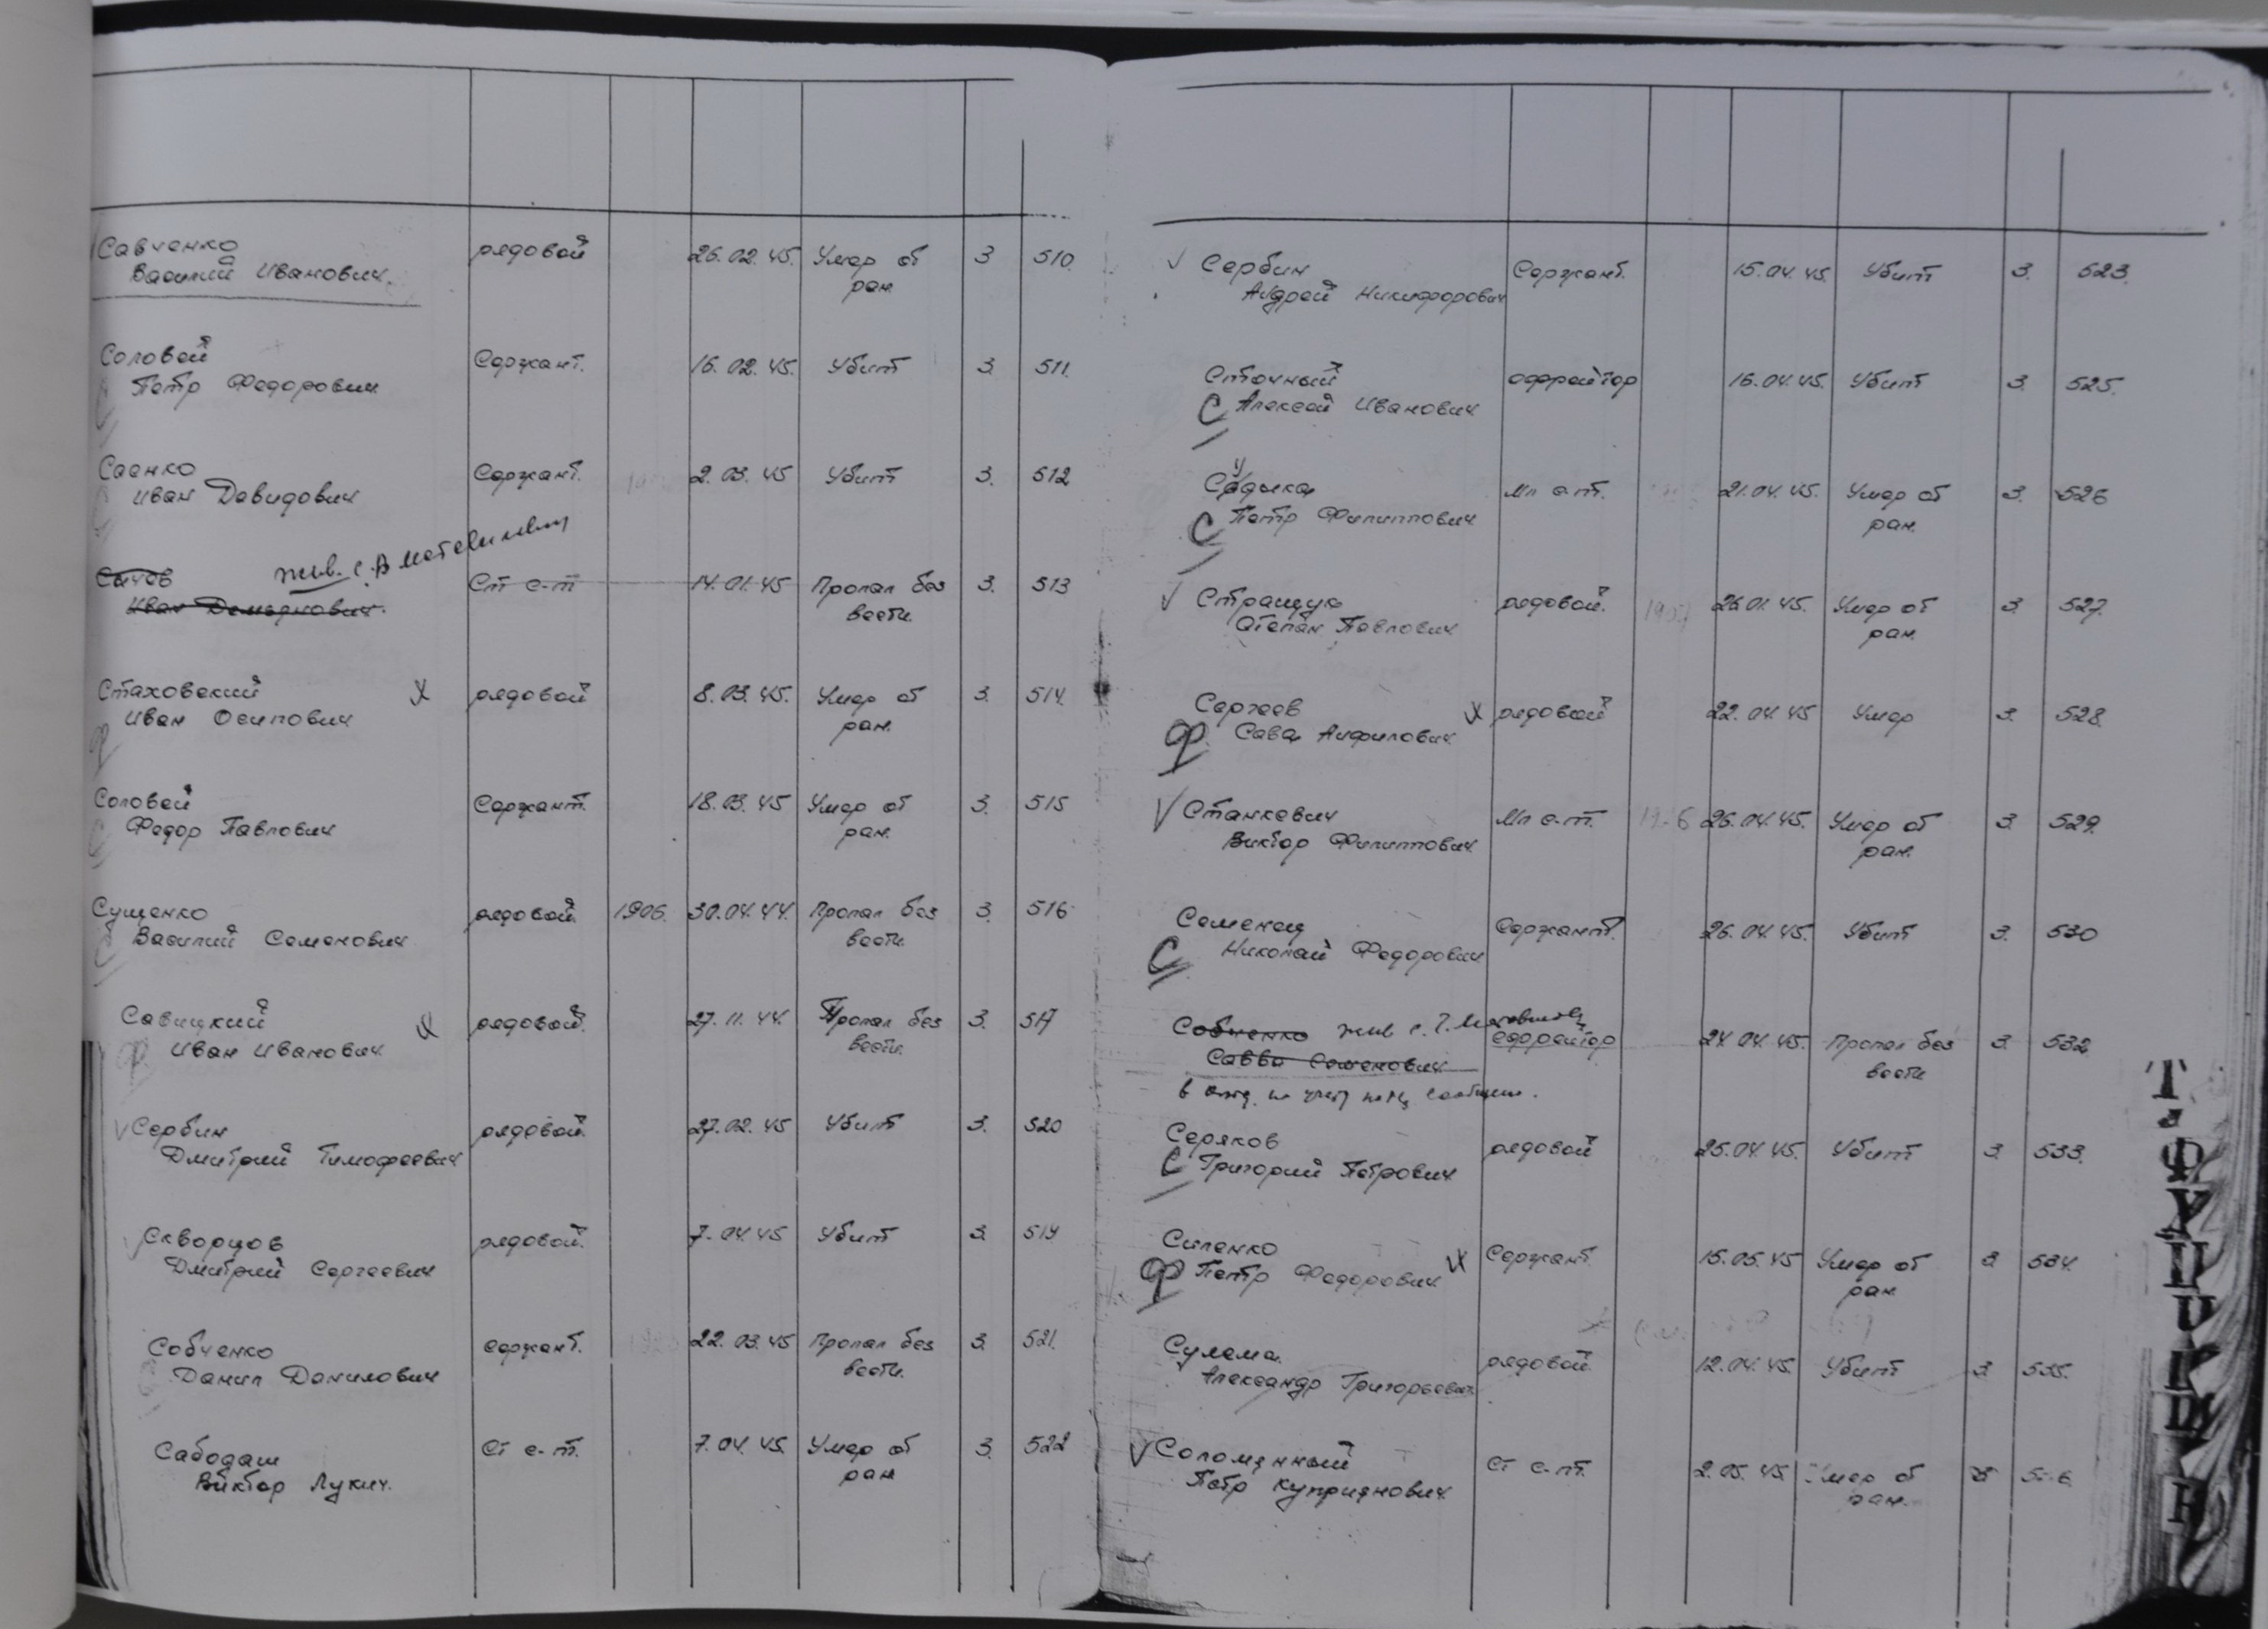 Савченко рядовой 26.02.45. Умер от 3 510
Василий Иванович. ран.
Соловей Сержант. 16.02.45. Убит 3. 511.
С Петр Федорович
Саенко Сержант. 2.03.45 Убит 3. 512
С Иван Давидович
жив. с.
Сычев Ст с-т 14.01.45 Пропал без 3. 513
Иван Демьянович. вести.
Стаховский х рядовой 8.03.45. Умер от 3. 514.
Ф Иван Осипович ран.
Соловей Сержант. 18.03.45 Умер от 3. 515
С Федор Павлович ран.
Сущенко рядовой 1906. 30.04.44. Пропал без 3. 516
С Василий Семенович вести.
Савицкий х рядовой. 27.11.44. Пропал без 3. 517
Ф Иван Иванович вести.
Сербин рядовой. 27.02.45 Убит 3. 520
Дмитрий Тимофеевич
Скворцов рядовой. 7.04.45 Убит 3. 519
Дмитрий Сергеевич
Собченко сержант. 22.03.45 Пропал без 3. 521.
Данил Данилович вести.
Сабодаш Ст с-т. 7.04.45 Умер от 3. 522
Виктор Лукич. ран
Сербин Сержант. 15.04.45. Убит 3. 523.
Андрей Никифорович
Сточный ефрейтор 16.04.45. Убит 3. 525.
С Алексей Иванович
Мл с-т. 21.04.45. Умер от 3. 526
С Петр Филиппович ран.
Стращук рядовой. 26.01.45. Умер от 3. 527.
Степан Павлович ран.
Сергеев х рядовой 22.04.45 Умер 3. 528.
Ф Сава ран.
Станкевич Мл с-т. 26.04.45. Умер от 3. 529.
Виктор Филиппович ран.
Семенец Сержант. 26.04.45. Убит 3. 530
С Николай Федорович
Собченко жив с. ефрейтор 24.04.45. Пропал без 3. 532
Савва Семенович вести
Серяков рядовой 25.04.45. Убит 3. 533.
С Григорий Петрович
Силенко х Сержант. 15.05.45 Умер от 3 534.
Ф Петр Федорович ран
Сулема рядовой 12.04.45. Убит 3. 535.
Александр Григорьевич
Соломянный Ст с-т. 2.05.45 Умер от
Петр Куприянович ран.
Т
Ф
У
Ц